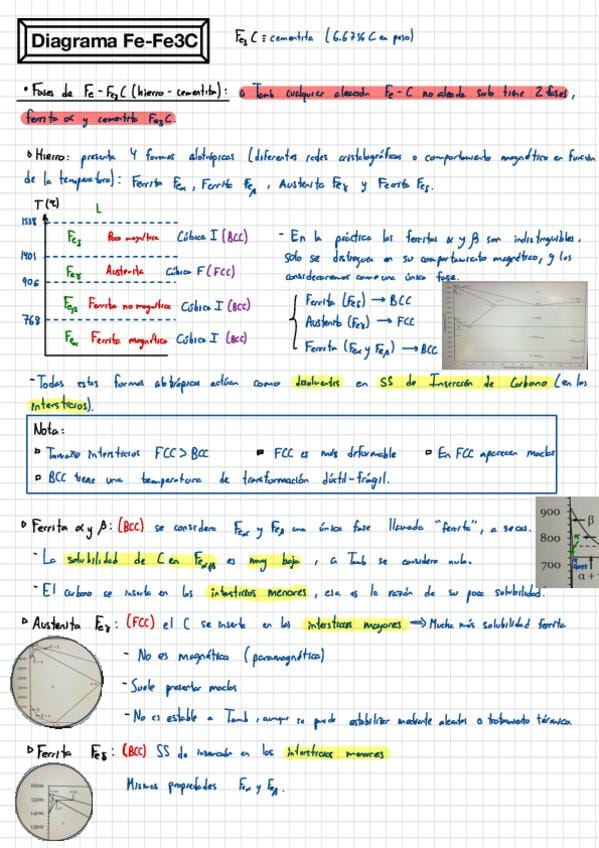 Diagrama Fe-Fe3C
Fe₃C: cementita (6.67% C en peso)
• Fases de Fe-Fe₃C (hierro-cementita): a Tamb cualquier aleación Fe-C no aleada solo tiene 2 fases,
ferrita α y cementita Fe₃C.
Hierro: presenta 4 formas alotrópicas (diferentes redes cristalográficas o comportamiento magnético en función
de la temperatura): Ferrita Feα, Ferrita Feβ, Austenita Feγ y Ferrita Feδ.
T(ºC) L
1538
Feδ Poco magnética Cúbica I (BCC)
1401
Feγ Austenita Cúbica F (FCC)
906
Feβ Ferrita no magnética Cúbica I (BCC)
768
Feα Ferrita magnética Cúbica I (BCC)
- En la práctica las ferritas α y β son indistinguibles.
Solo se distinguen en su comportamiento magnético, y las
consideraremos como una única fase.
Ferrita (Feδ) → BCC
Austenita (Feγ) → FCC
Ferrita (Feα y Feβ) → BCC
- Todas estas formas alotrópicas actúan como disolventes en SS de Inserción de Carbono (en los
intersticios).
Nota:
Tamaño intersticios FCC > BCC
FCC es más deformable
En FCC aparecen maclas
BCC tiene una temperatura de transformación dúctil-frágil.
Ferrita α y β: (BCC) se considera Feα y Feβ una única fase llamada "ferrita", a secas.
- La solubilidad de C en Feα,β es muy baja, a Tamb se considera nula.
- El carbono se inserta en los intersticios menores, esa es la razón de su poca solubilidad.
900
β
800
700
α +
Austenita Feγ: (FCC) el C se inserta en los intersticios mayores ⇒ Mucha más solubilidad ferrita
- No es magnética (paramagnética)
- Suele presentar maclas
- No es estable a Tamb, aunque se puede estabilizar mediante aleantes o tratamiento térmico.
Ferrita Feδ: (BCC) SS de inserción en los intersticios menores
Mismas propiedades Feα y Feβ.
1600
1500
1400
1300